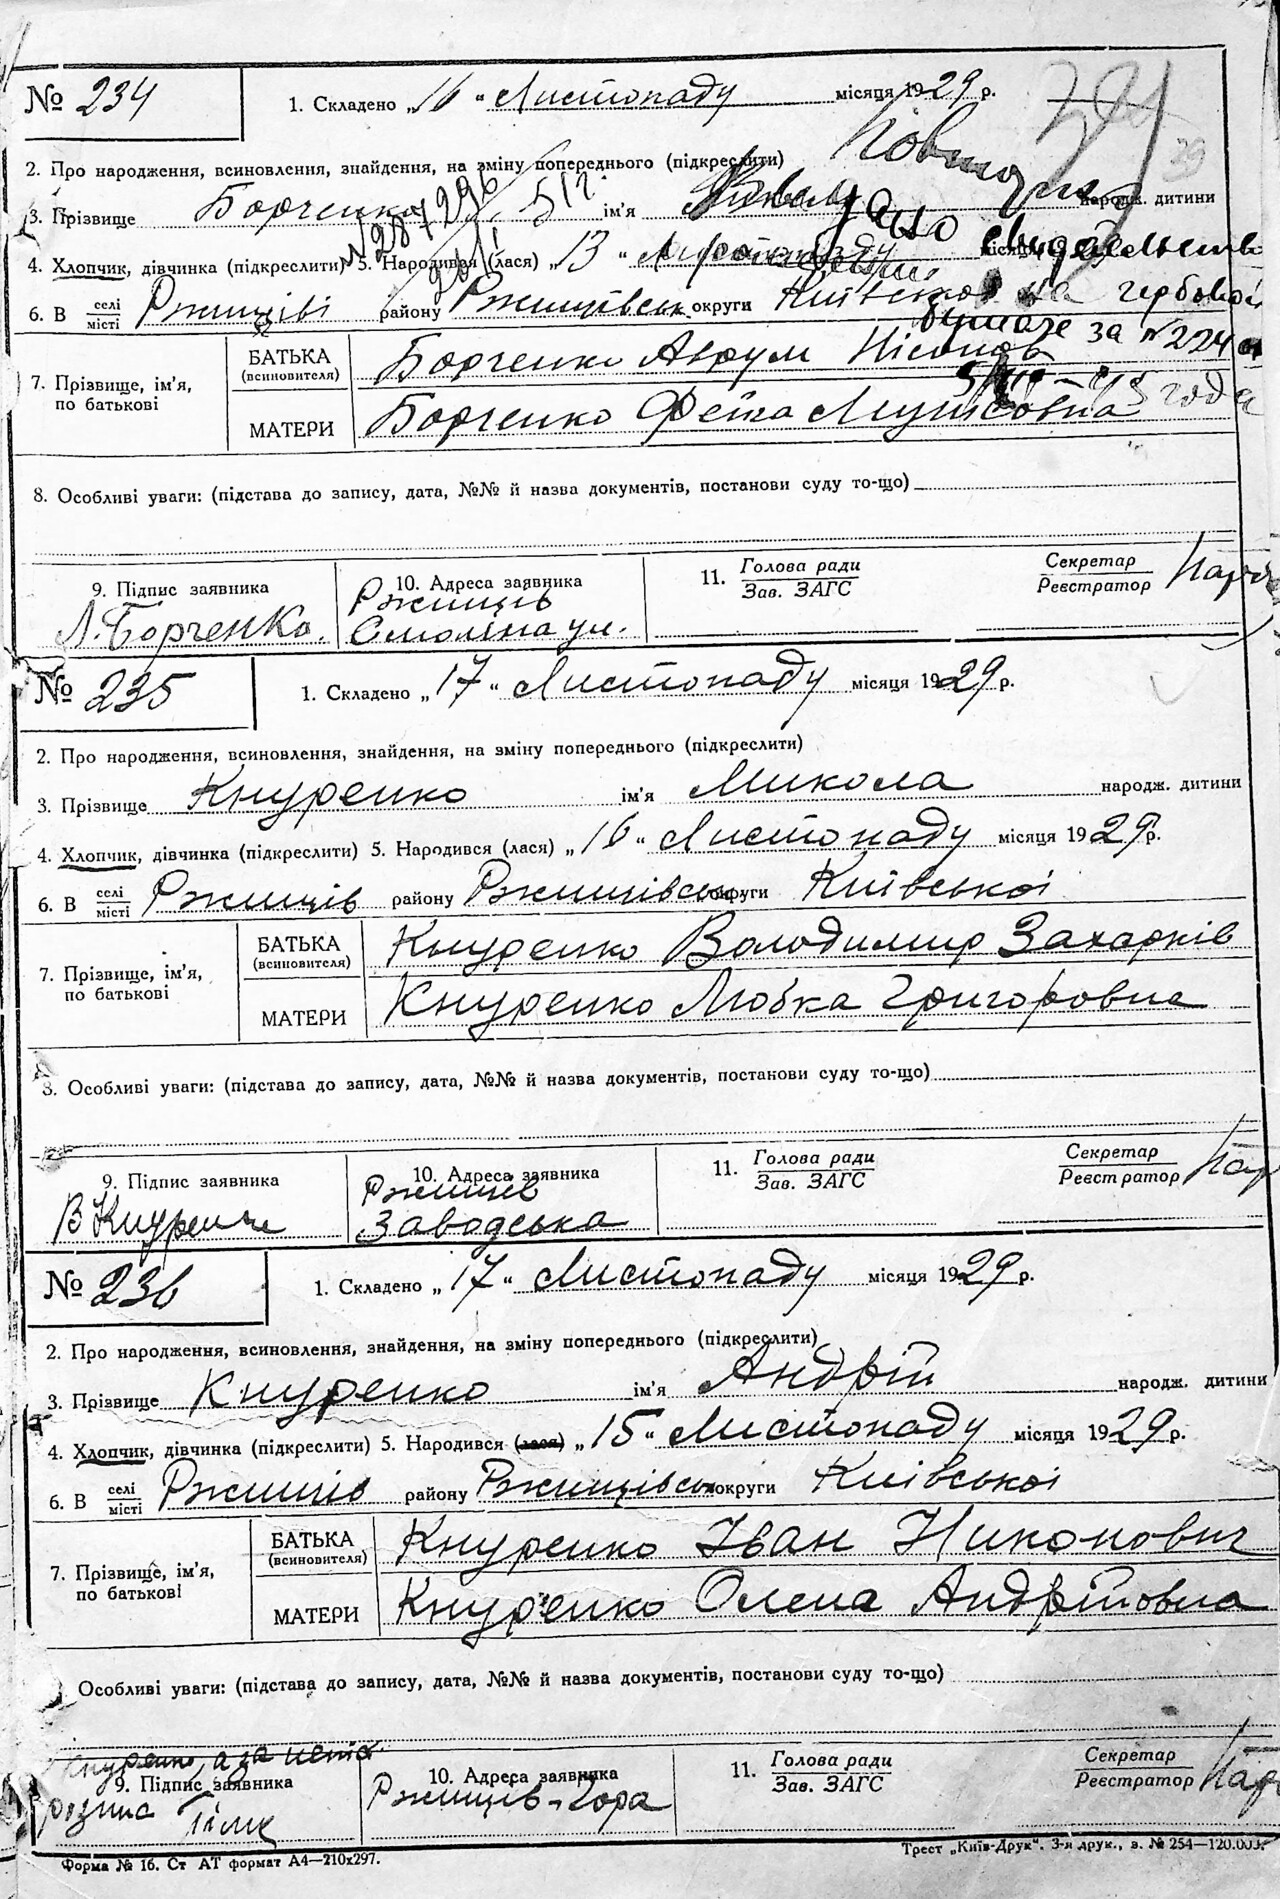 № 234
1. Складено „16“ Листопаду місяця 1929 р.
2. Про народження, всиновлення, знайдення, на зміну попереднього (підкреслити)
3. Прізвище Борченко ім'я народж. дитини
4. Хлопчик, дівчинка (підкреслити) 5. Народився (лася) „13“
6. В селі/місті Ржищіві району Ржищівськ округи Київської
на гербовой
бумаге за № 224
года
7. Прізвище, ім'я, по батькові
БАТЬКА (всиновителя) Борченко Аврум
МАТЕРИ Борченко
8. Особливі уваги: (підстава до запису, дата, №№ й назва документів, постанови суду то-що)
9. Підпис заявника
Л. Борченко.
10. Адреса заявника
Ржищів
ул.
11. Голова ради
Зав. ЗАГС
Секретар
Реєстратор
№ 235
1. Складено „17“ Листопаду місяця 1929 р.
2. Про народження, всиновлення, знайдення, на зміну попереднього (підкреслити)
3. Прізвище Кнуренко ім'я Микола народж. дитини
4. Хлопчик, дівчинка (підкреслити) 5. Народився (лася) „16“ Листопаду місяця 1929 р.
6. В селі/місті Ржищів району Ржищівськ округи Київської
7. Прізвище, ім'я, по батькові
БАТЬКА (всиновителя) Кнуренко Володимир Захарків
МАТЕРИ Кнуренко Любка Григоровна
8. Особливі уваги: (підстава до запису, дата, №№ й назва документів, постанови суду то-що)
9. Підпис заявника
В Кнуренко
10. Адреса заявника
Ржищев
Заводська
11. Голова ради
Зав. ЗАГС
Секретар
Реєстратор
№ 236
1. Складено „17“ Листопаду місяця 1929 р.
2. Про народження, всиновлення, знайдення, на зміну попереднього (підкреслити)
3. Прізвище Кнуренко ім'я Андрій народж. дитини
4. Хлопчик, дівчинка (підкреслити) 5. Народився (лася) „15“ Листопаду місяця 1929 р.
6. В селі/місті Ржищів району Ржищівськ округи Київської
7. Прізвище, ім'я, по батькові
БАТЬКА (всиновителя) Кнуренко Іван Никонович
МАТЕРИ Кнуренко Олена Андрійовна
Особливі уваги: (підстава до запису, дата, №№ й назва документів, постанови суду то-що)
Кнуренко, а за
9. Підпис заявника
10. Адреса заявника
Ржищів-Гора
11. Голова ради
Зав. ЗАГС
Секретар
Реєстратор
Форма № 16. Ст АТ формат А4—210х297.
Трест „Київ-Друк“. 3-я друк., з. № 254—120.000.